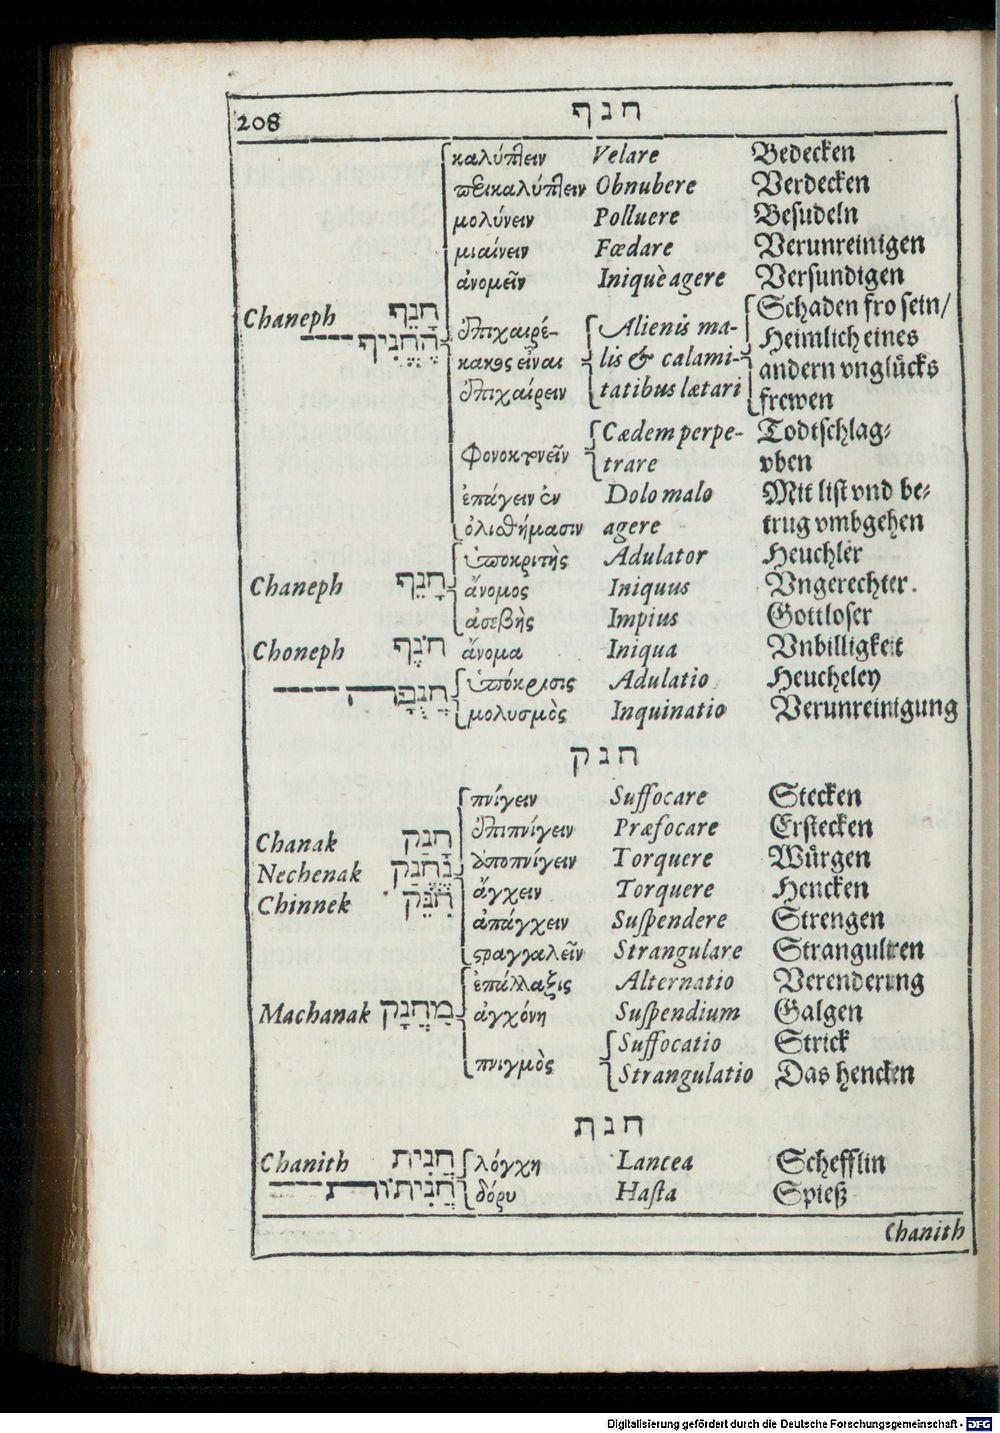 208 חנף
καλύπτειν Velare Bedecken
περικαλύπτειν Obnubere Verdecken
μολύνειν Polluere Besudeln
μιαίνειν Fœdare Verunreinigen
ἀνομεῖν Iniquè agere Versundigen
Schaden fro sein/
Chaneph חָנֵף ἐπιχαιρέ- Alienis ma- Heimlich eines
הֶחֱנִיף κακος εἶναι lis & calami- andern vnglücks
ἐπιχαίρειν tatibus lætari frewen
φονοκτονεῖν Cædem perpe- Todtschlag-
trare vben
ἐπάγειν ἐν Dolo malo Mit list vnd be-
ὀλισθήμασιν agere trug vmbgehen
ὑποκριτὴς Adulator Heuchler
Chaneph חָנֵף ἄνομος Iniquus Vngerechter.
ἀσεβὴς Impius Gottloser
Choneph חוֹנֶף ἄνομα Iniqua Vnbilligkeit
ὑπόκρισις Adulatio Heucheley
חֲנֻפָּה μολυσμὸς Inquinatio Verunreinigung
חנק
πνίγειν Suffocare Stecken
ἐπιπνίγειν Præfocare Erstecken
Chanak חָנַק ἀποπνίγειν Torquere Würgen
Nechenak נֶחֱנַק ἄγχειν Torquere Hencken
Chinnek חִנֵּק ἀπάγχειν Suspendere Strengen
στραγγαλεῖν Strangulare Strangulieren
ἐπάλλαξις Alternatio Verenderung
Machanak מַחֲנָק ἀγχόνη Suspendium Galgen
Suffocatio Strick
πνιγμὸς Strangulatio Das hencken
חנת
Chanith חֲנִית λόγχη Lancea Schefflin
חֲנִיתוֹת δόρυ Hasta Spieß
Chanith
Digitalisierung gefördert durch die Deutsche Forschungsgemeinschaft - DFG